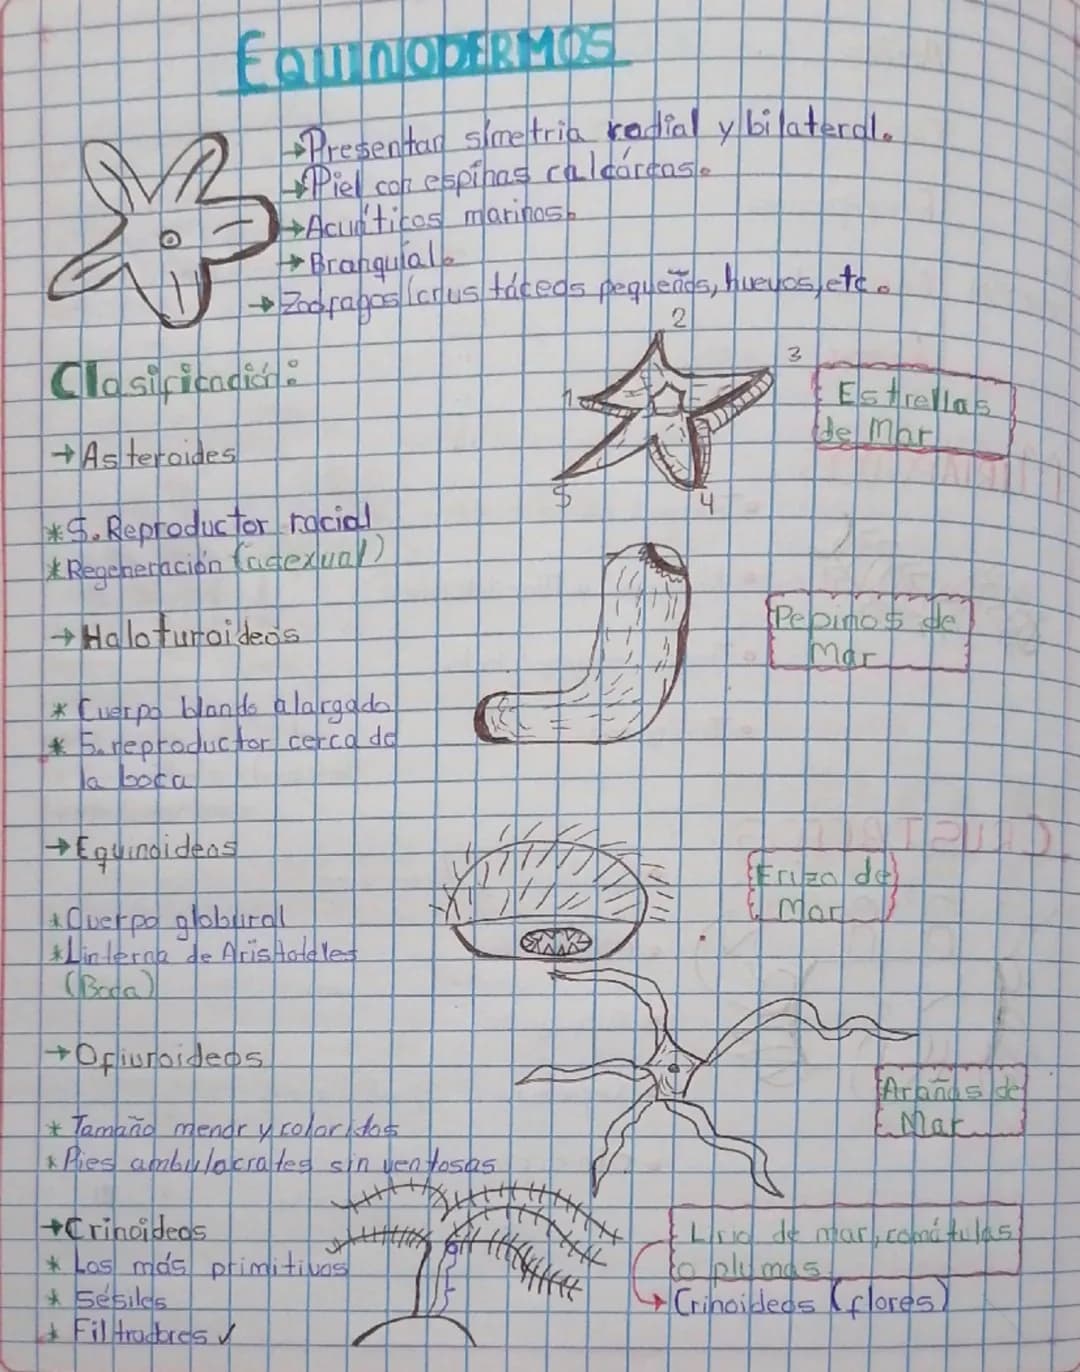 EQUINODERMOS
→Presentan simetria radial y bilateral.
→Piel con espinas calcáreas.
→Acuáticos marinos.
→Branquial.
→Zoófagos (crustáceos pequeños, huevos, etc.
Clasificación:
2
3
1
5
4
Estrellas
de Mar
→Asteroides
*S. Reproductor racial
*Regeneración (asexual)
→Haloturoideos
Pepinos de
Mar
* Cuerpo blando alargado
* S. reproductor cerca de
la boca
→Equinoideos
Erizo de
Mar
*Cuerpo globural
*Linterna de Aristóteles
(Boca)
→Ofiuroideos
Arañas de
Mar
* Tamaño menor y coloridos
* Pies ambulacrales sin ventosas
→Crinoideos
* Los más primitivos
* Sésiles
* Filtradores ✓
Lirio de mar, comátulas
o plumas
→Crinoideos (flores)